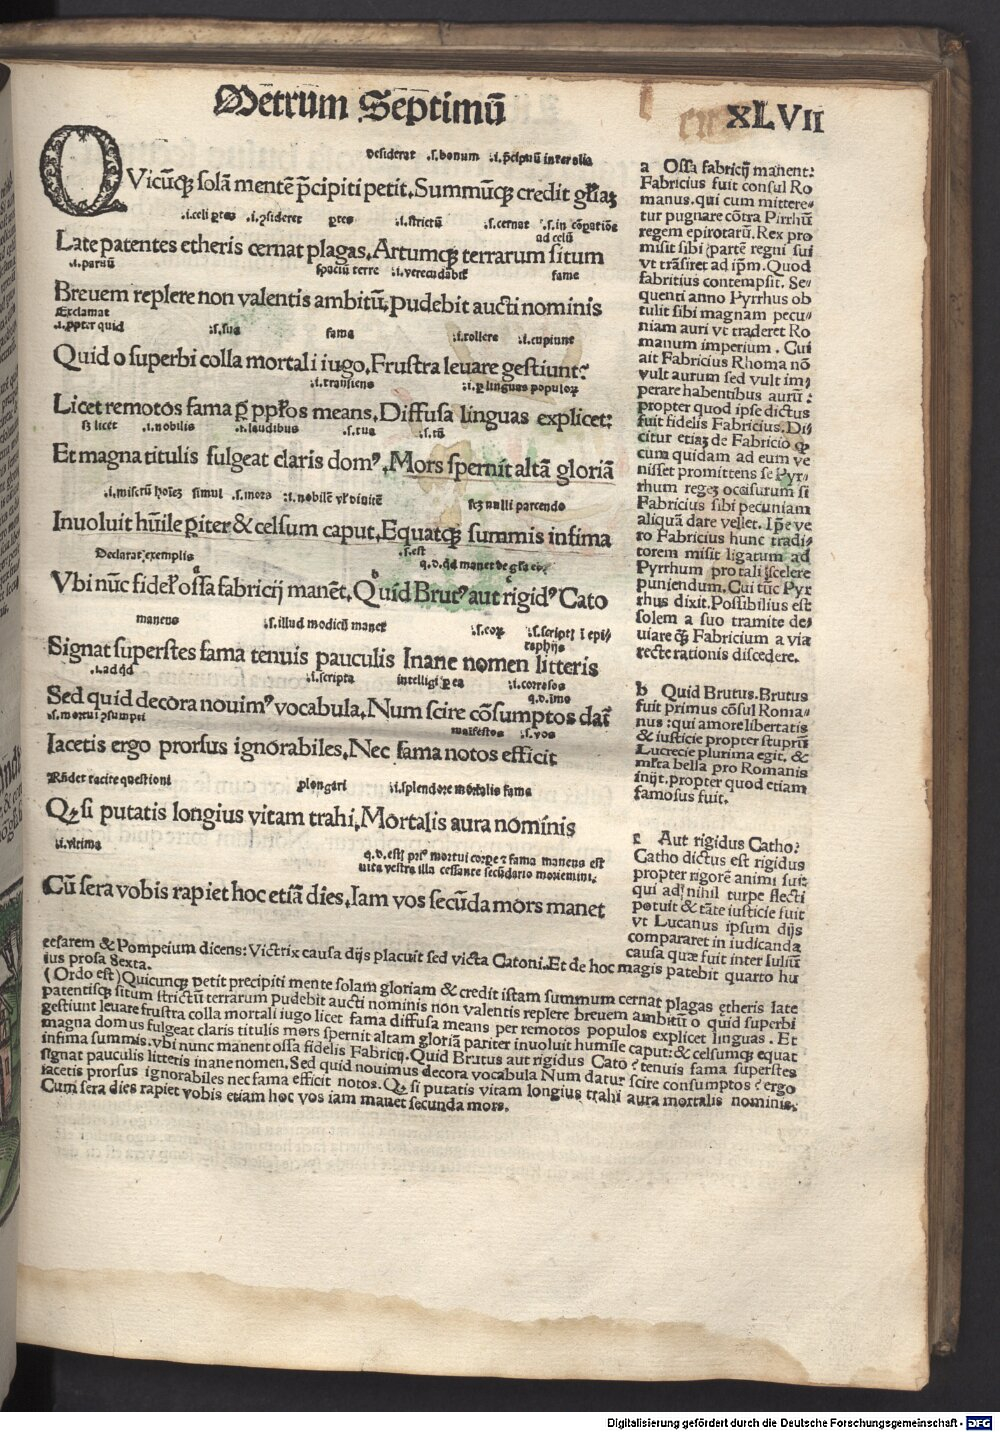 Metrum Septimū
XLVII
desiderat .s.bonum .i.p̄cipuū inter alia
QVicūq; solā mentē p̄cipiti petit.Summūq; credit gl̄iaȝ
.i.celi ꝑtes .i.ɔsideret ꝑtes .i.strictū .s.cernat .s.in cōpatiōe
ad celū
Late patentes etheris cernat plagas.Artumq; terrarum situm
.i.paruū spaciū terre .i.verecundabit̄ fame
Breuem replere non valentis ambitū.pudebit aucti nominis
Exclamat
.i.ꝓpter quid .s.sua fama .i.tollere .i.cupiunt
Quid o superbi colla mortali iugo.Frustra leuare gestiunt:
.i.transiens .i.ꝑ linguas populoꝝ
Licet remotos fama ꝑ ppl̄os means.Diffusa linguas explicet:
sȝ licet .i.nobilis .i.laudibus .s.tua .s.tn̄
Et magna titulis fulgeat claris domꝰ.Mors spernit altā gloriā
.i.miserū hoīeȝ simul .s.mors .i.nobilē vl̄ diuitē sȝ nulli parcendo
Inuoluit hūile ꝑiter & celsum caput.Equatq; summis infima
Declarat exemplis .s.est
a b q.d.qd manet de gl̄ia eoꝝ c
Vbi nūc fidel̄ ossa fabricij manēt.Quid Brutꝰ aut rigidꝰ Cato
manens .s.illud modicū manet .s.eoꝝ .s.script̄ ī epi⸗
taphijs
Signat superstes fama tenuis pauculis Inane nomen litteris
.i.ad qd .i.scripta intelligi ꝑ ea .i.corrosos
q.d.imo
Sed quid decora nouimꝰ vocabula.Num scire cōsumptos dat̄
.s.mortui ɔsumpti malfestos .s.vos
Iacetis ergo prorsus ignorabiles.Nec fama notos efficit
Rn̄det tacite questioni plongari .i.splendore mortalis fama
Qꝫ si putatis longius vitam trahi.Mortalis aura nominis
.i.vltima q.d.est̄ pri⁹ mortui corpe ⁊ fama manens est
uita vestra illa cessante secūdario moriemini.
Cū sera vobis rapiet hoc etiā dies.Iam vos secūda mors manet
a Ossa fabricij manent:
Fabricius fuit consul Ro
manus.qui cum mittere⸗
tur pugnare cōtra Pirrhū
regem epirotarū.Rex pro
misit sibi ꝗrtē regni sui
vt trāsiret ad ip̄m.Quod
fabritius contempsit. Se⸗
quenti anno Pyrrhus ob
tulit sibi magnam pecu⸗
niam auri vt traderet Ro
manum imperium . Cui
ait Fabricius Rhoma nō
vult aurum sed vult im⸗
perare habentibus aurū :
propter quod ipse dictus
fuit fidelis Fabricius.Di⸗
citur etiaȝ de Fabricio ꝙ
cum quidam ad eum ve
nisset promittens se Pyr⸗
rhum regeȝ occisurum si
Fabricius sibi pecuniam
aliquā dare vellet. Ip̄e ve
ro Fabricius hunc tradi⸗
torem misit ligatum ad
Pyrrhum pro tali scelere
puniendum.Cui tūc Pyr
rhus dixit.Possibilius est
solem a suo tramite de⸗
uiare ꝙ̄ Fabricium a via
recte rationis discedere.
b Quid Brutus.Brutus
fuit primus cōsul Roma⸗
nus :qui amore libertatis
& iusticie propter stuprū
Lucrecie plurima egit. &
ml̄ta bella pro Romanis
inijt.propter quod etiam
famosus fuit.
c Aut rigidus Catho?
Catho dictus est rigidus
propter rigorē animi sui:
qui ad nihil turpe flecti
potuit & tāte iusticie fuit
vt Lucanus ipsum dijs
compararet in iudicanda
causa quæ fuit inter Iuliū
cesarem & Pompeium dicens: Victrix causa dijs placuit sed victa Catoni.Et de hoc magis patebit quarto hu
ius prosa Sexta.
(Ordo est)Quicunq; petit precipiti mente solam gloriam & credit istam summum cernat plagas etheris late
patentisq; situm strictū terrarum pudebit aucti nominis non valentis replere breuem ambitū o quid superbi
gestiunt leuare frustra colla mortali iugo licet fama diffusa means per remotos populos explicet linguas . Et
magna domus fulgeat claris titulis mors spernit altam gloriā pariter inuoluit humile caput: & celsumq; equat
infima summis.vbi nunc manent ossa fidelis Fabricij.Quid Brutus aut rigidus Cato ? tenuis fama superstes
signat pauculis litteris inane nomen.Sed quid nouimus decora vocabula Num datur scire consumptos ? ergo
iacetis prorsus ignorabiles nec fama efficit notos.Qꝫ si putatis vitam longius trahi aura mortalis nominis.
Cum sera dies rapiet vobis etiam hoc vos iam manet secunda mors.
Digitalisierung gefördert durch die Deutsche Forschungsgemeinschaft - DFG